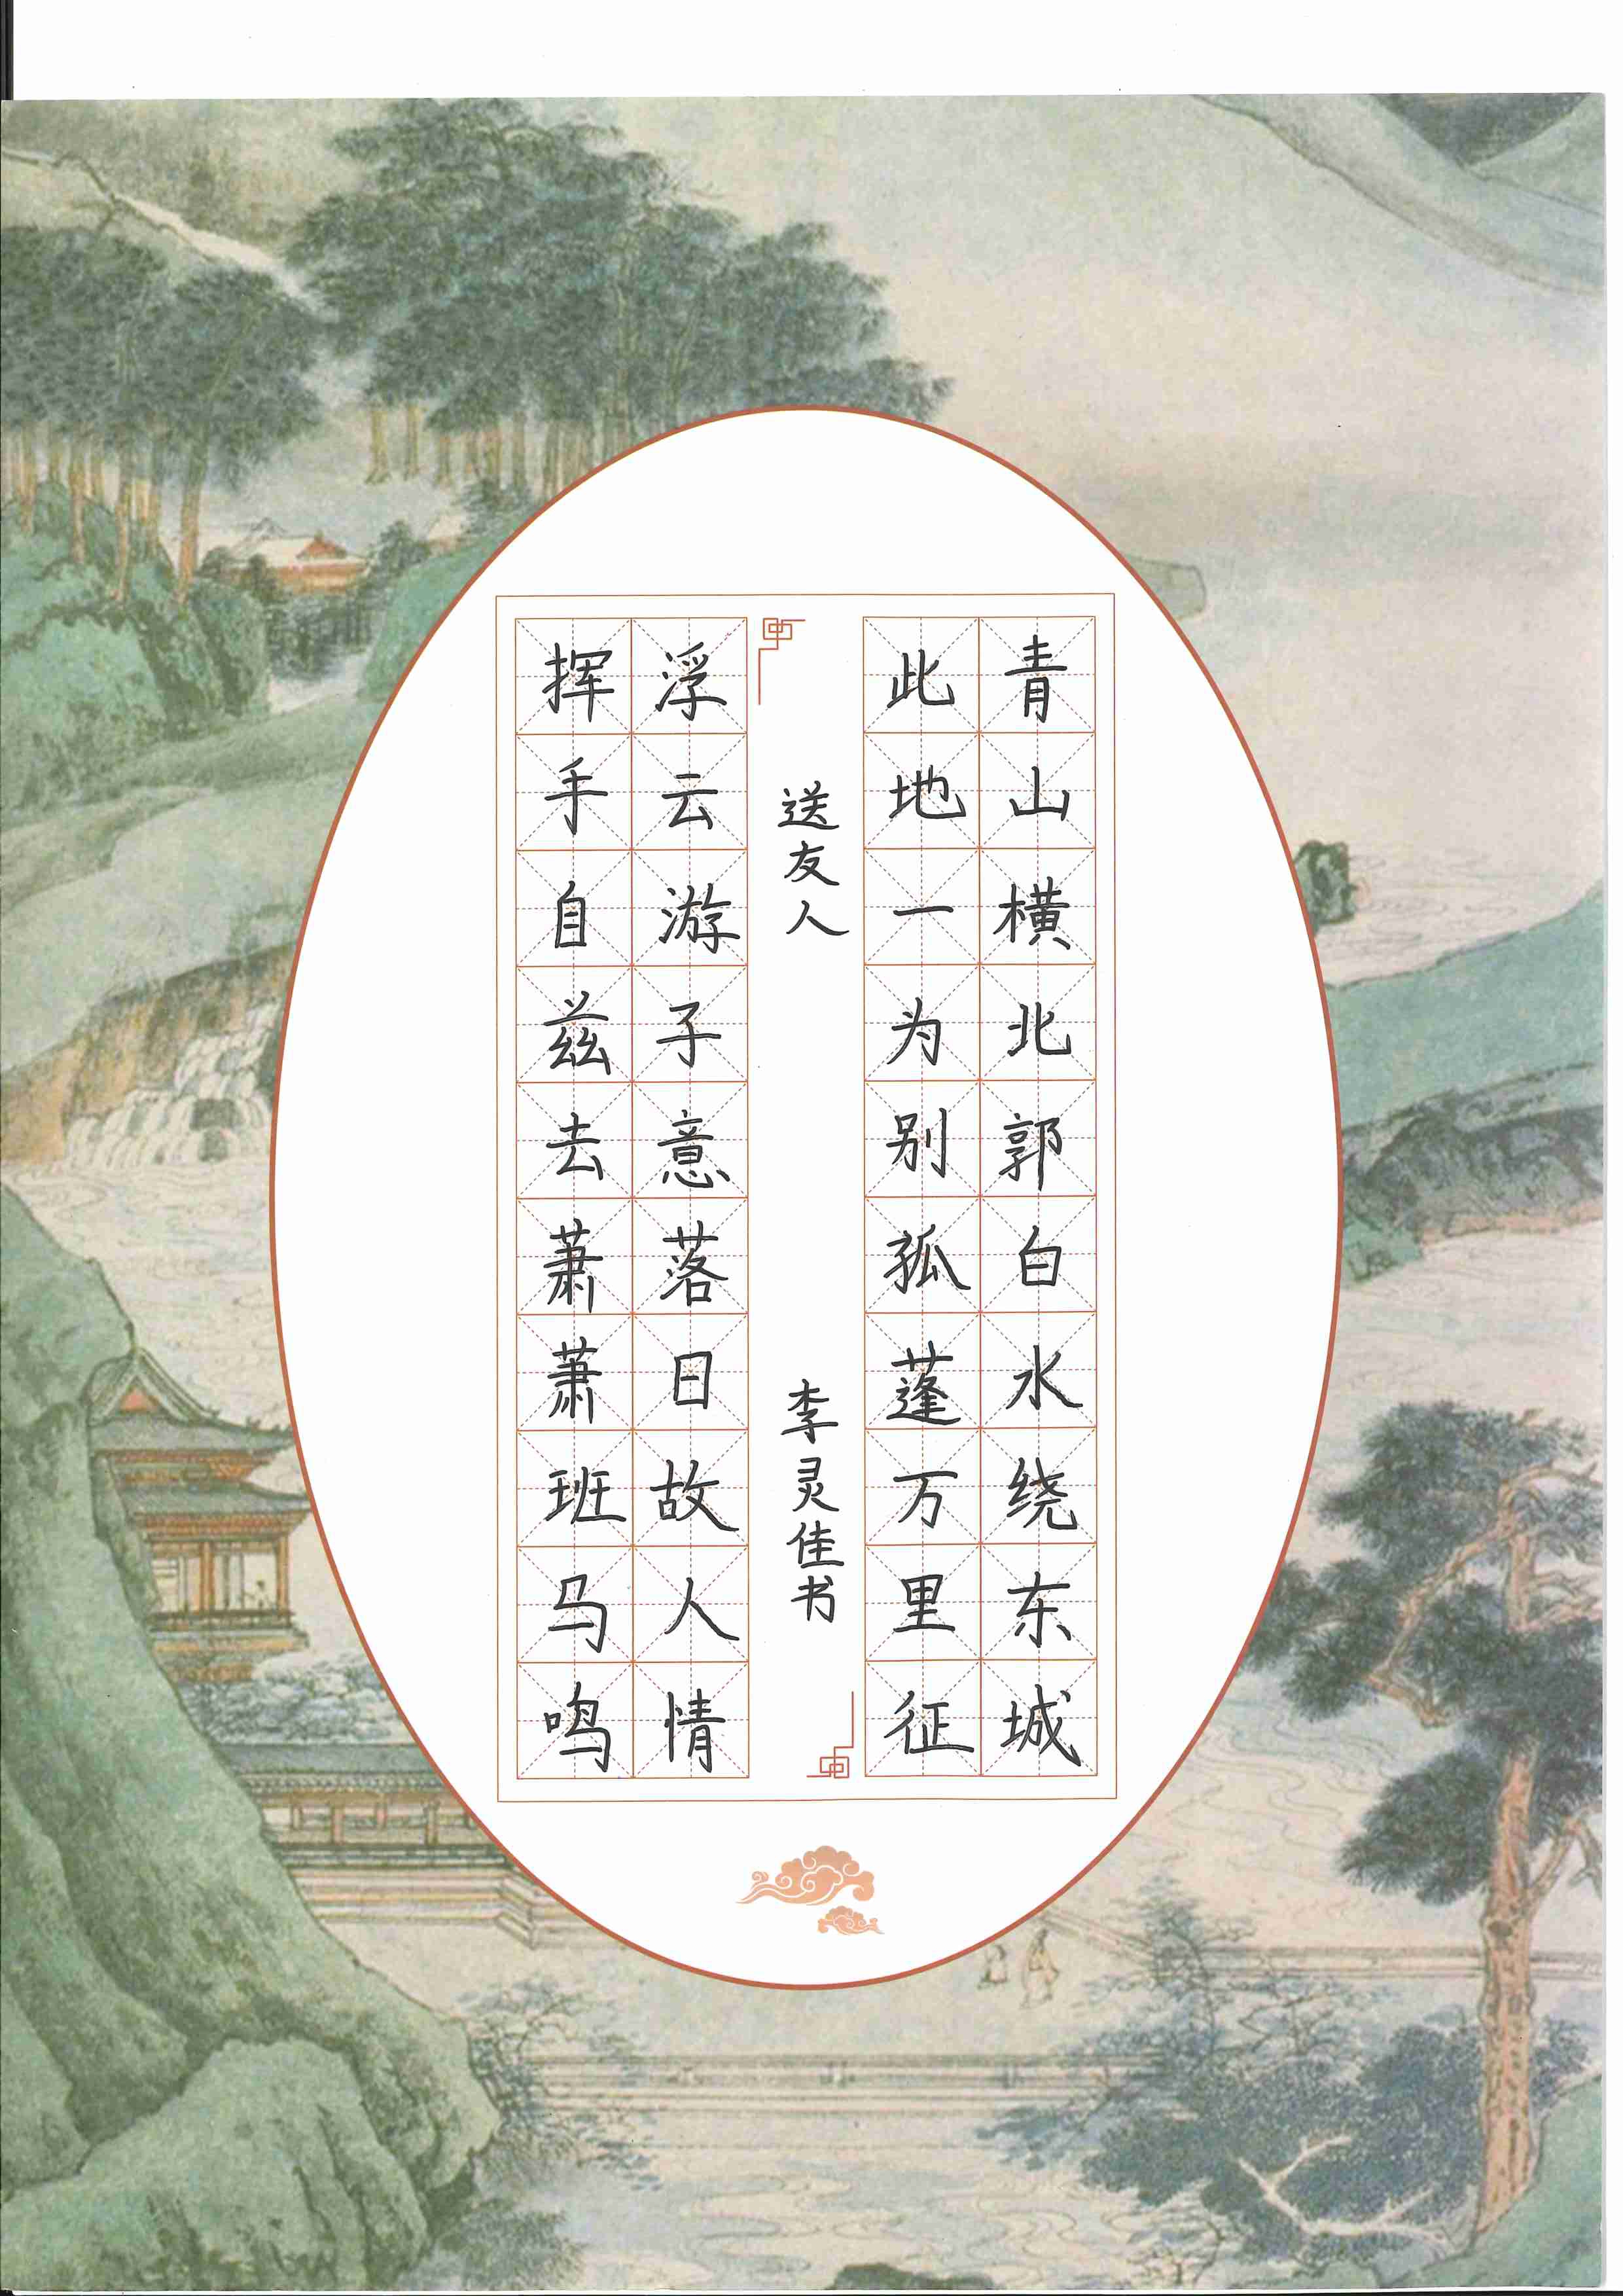 青山横北郭白水绕东城
此地一为别孤蓬万里征
送友人
李灵佳书
浮云游子意落日故人情
挥手自兹去萧萧班马鸣